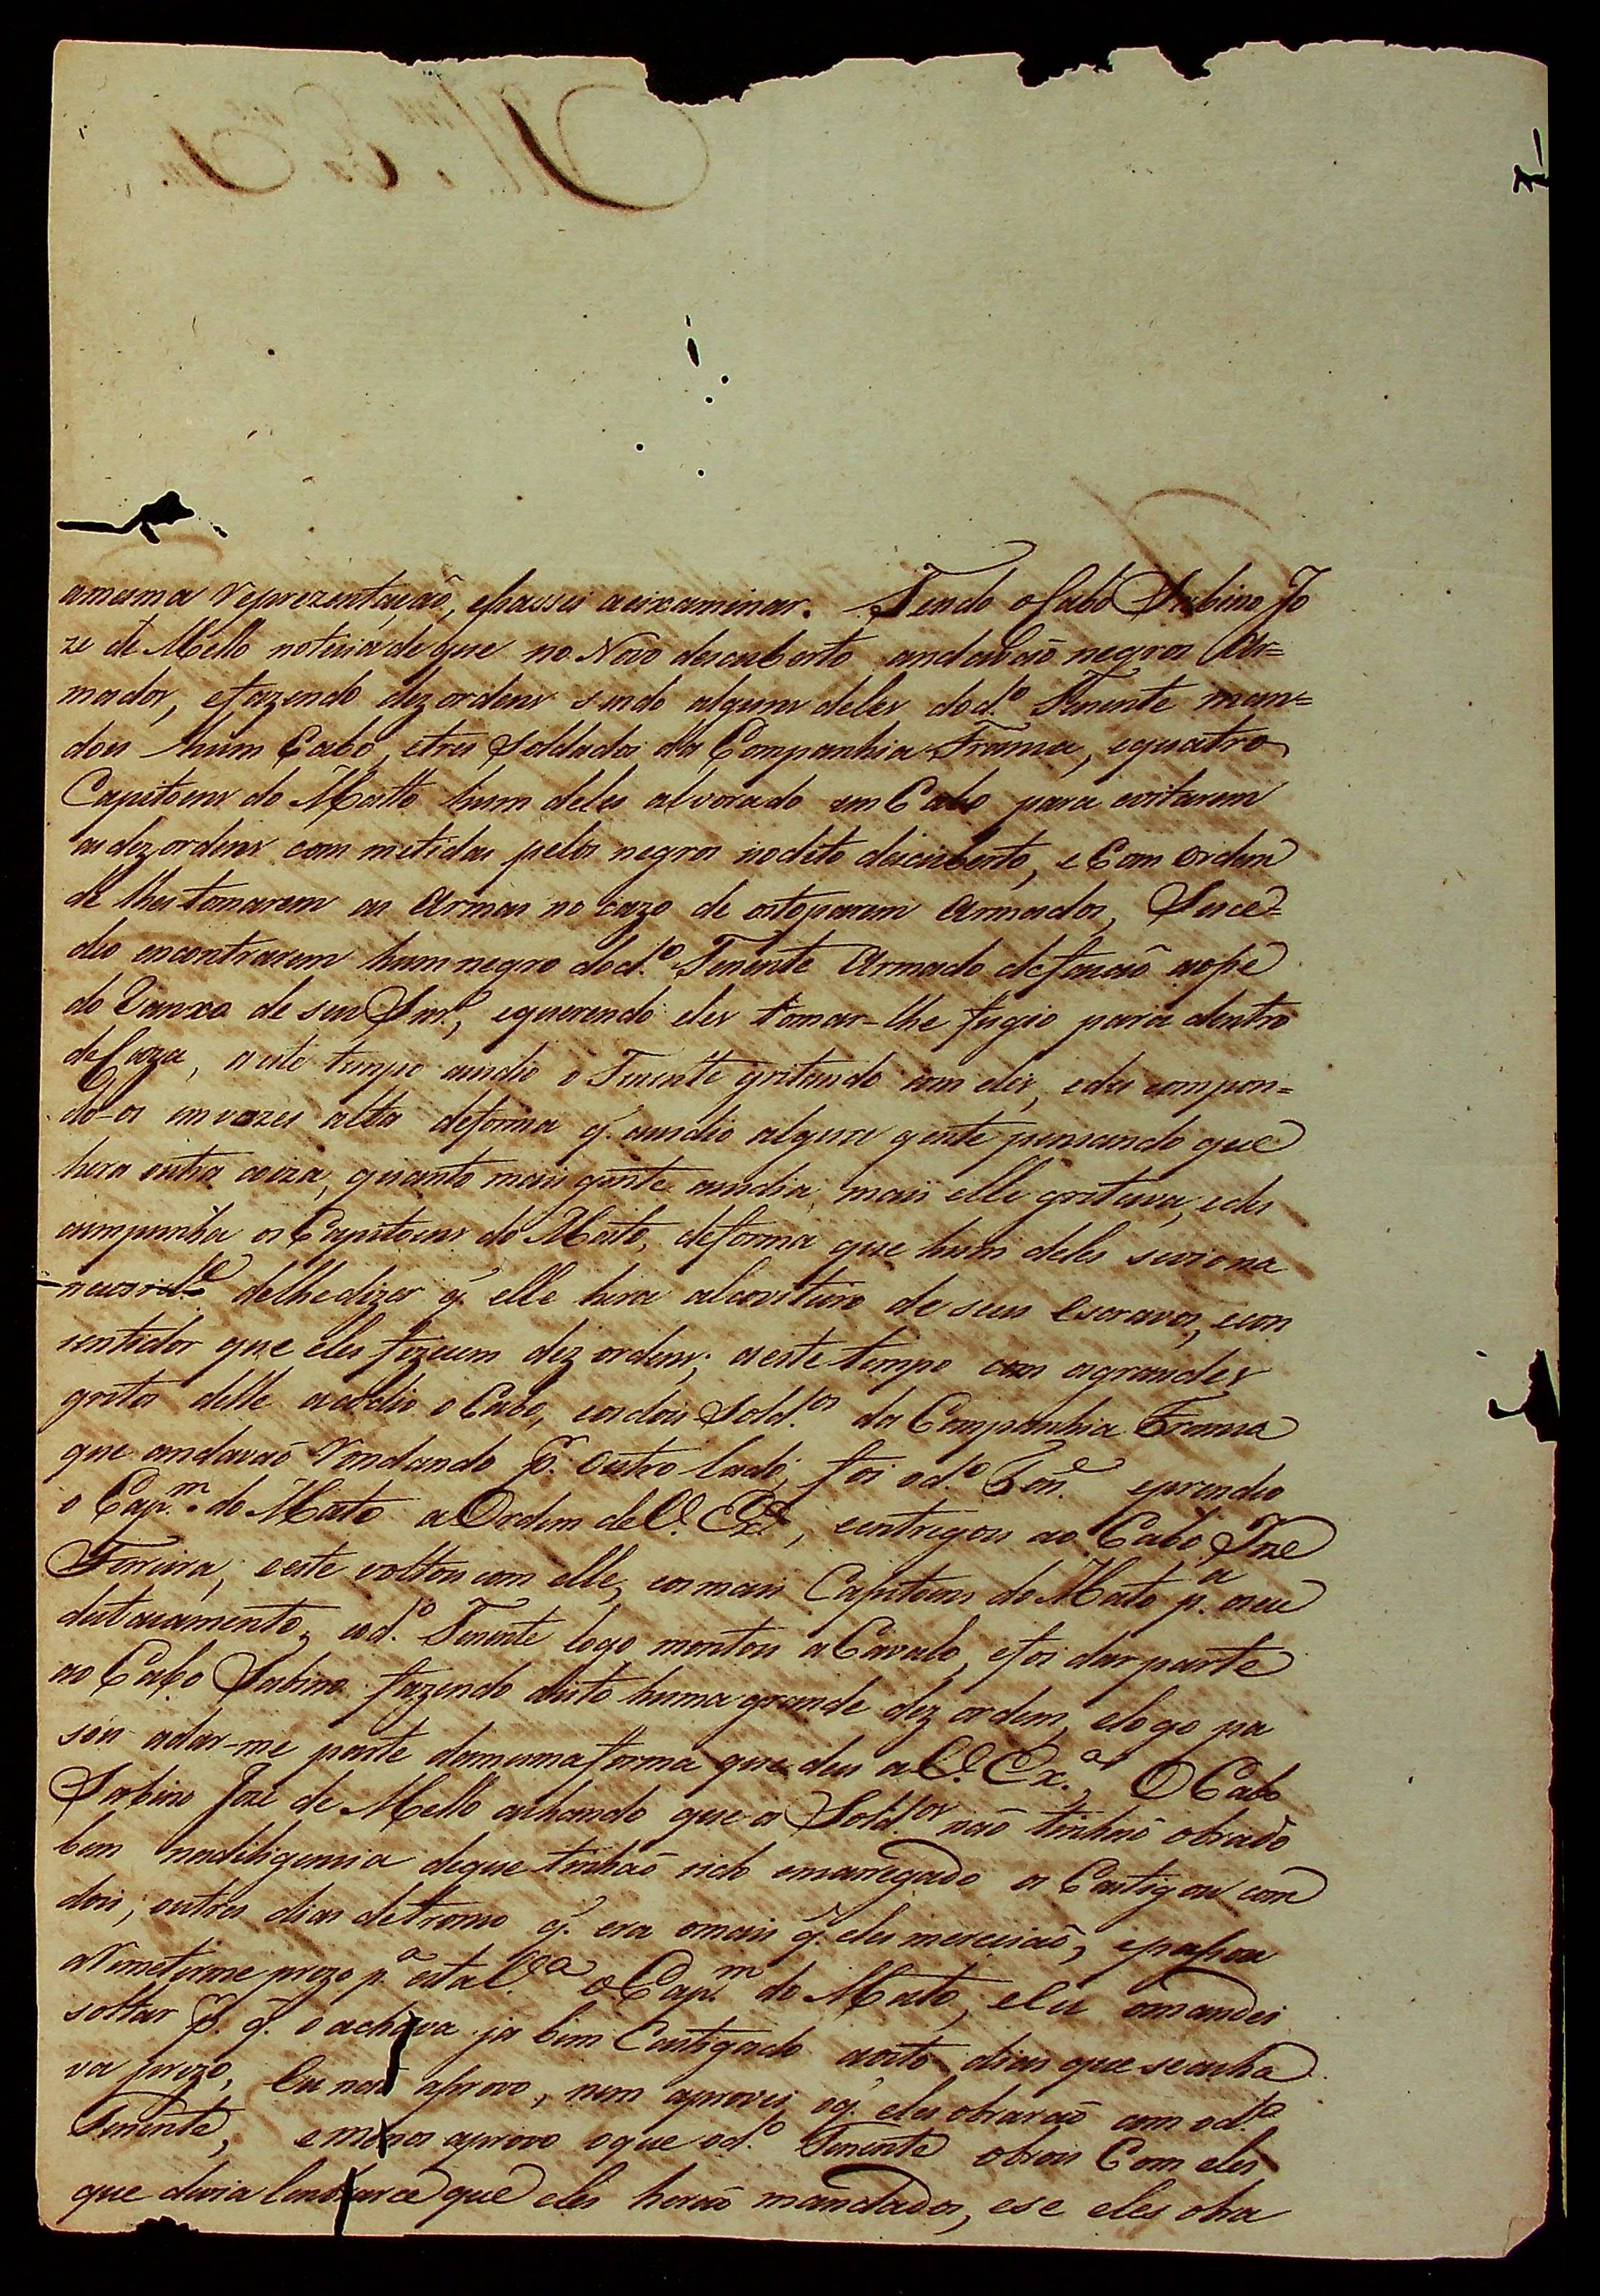 amesma Reprezentação, epassei aeixaminar. Tendo oCabo Sabino Jo
ze de Mello noticia de que no Novo descuberto andavão negros Ar=
mados, efazendo dezordens sendo alguns deles dod.º Tenente man=
dou hum Cabo, etres Soldados da Companhia Franca, equatro
Capitoens do Matto hum deles alvorado em Cabo para evitarem
as dezordens com metidas pelos negros nodito descuberto, e Com ordem
de lhes tomarem as Armas no cazo de ostoparem Armados, Suce=
deo encontrarem hum negro dod.º Tenente Armado defacão aopé
do Ranxo de seu Snr., equerendo eles tomar-lhe fugio para dentro
deCaza, a este tempo acudio o Tenente gritando com eles, edes compon=
do-os em vozes alta deforma q̃ acudio algua gente pensando que
hera outra coiza, quanto mais gente acudia, mais elle gritava, edes
cumpunha os Capitoens do Mato, deforma que hum deles sevio na
necesid.e delhedizer q̃ elle hera alcoviteiro de seus Escravos, econ
sentidor que eles fizecem dez ordens; aeste tempo com osgrandes
gritos delle acodio o Cabo, eosdois Sold.os da Companhia Franca
que andavão Rondando p.r outro lado, foi od.º Ten.e eprendeo
o Cap.m do Mato a Ordem deV. Ex.ª, eentregou ao Cabo Joze
Ferreira, eeste voltou com elle, eosmais Capitoens do Mato p.a oseu
destacamento, eod.º Tenente logo montou aCavalo, efoi darparte
ao Cabo Sabino fazendo disto huma grande dez ordem, elogo pa
sou adar-me parte damesmaforma que deu aV. Ex.ª, O Cabo
Sabino Joze de Mello achando que os Sold.os não tinhão obrado
bem nadiligencia deque tinhão sido emcarregado os Castigou com
dois, outres dias detronco q̃ era omais q̃ eles merecião, epasou
aRemeterme prezo p.a esta V.ª o Cap.m do Mato, eEu omandei
soltar p.r q̃ o achava ja bem Castigado aoito dias que seacha
va prezo, Eu não aprovo, nem aprovei oq̃ eles obrarão com od.º
Tenente, emenos aprovo oque od.º Tenente obrou Com eles
que devia lembrarce que eles herão mandados, ese eles obra